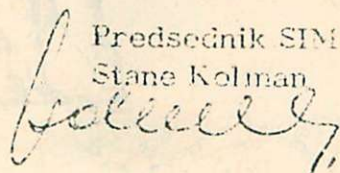 Predsednik SIM
Stane Kolman